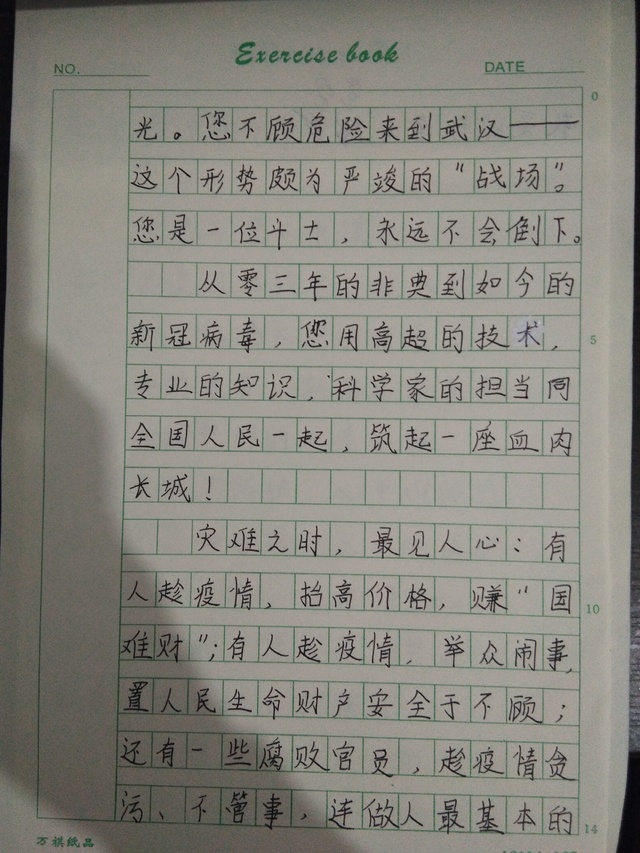 Exercise book
NO.
DATE
0
光。您不顾危险来到武汉——
这个形势颇为严竣的“战场”。
您是一位斗士，永远不会倒下。
从零三年的非典到如今的
新冠病毒，您用高超的技术，
5
专业的知识，科学家的担当同
全国人民一起，筑起一座血肉
长城！
灾难之时，最见人心：有
人趁疫情，抬高价格，赚“国
10
难财”；有人趁疫情，举众闹事，
置人民生命财产安全于不顾；
还有一些腐败官员，趁疫情贪
污、不管事，连做人最基本的
14
万祺纸品